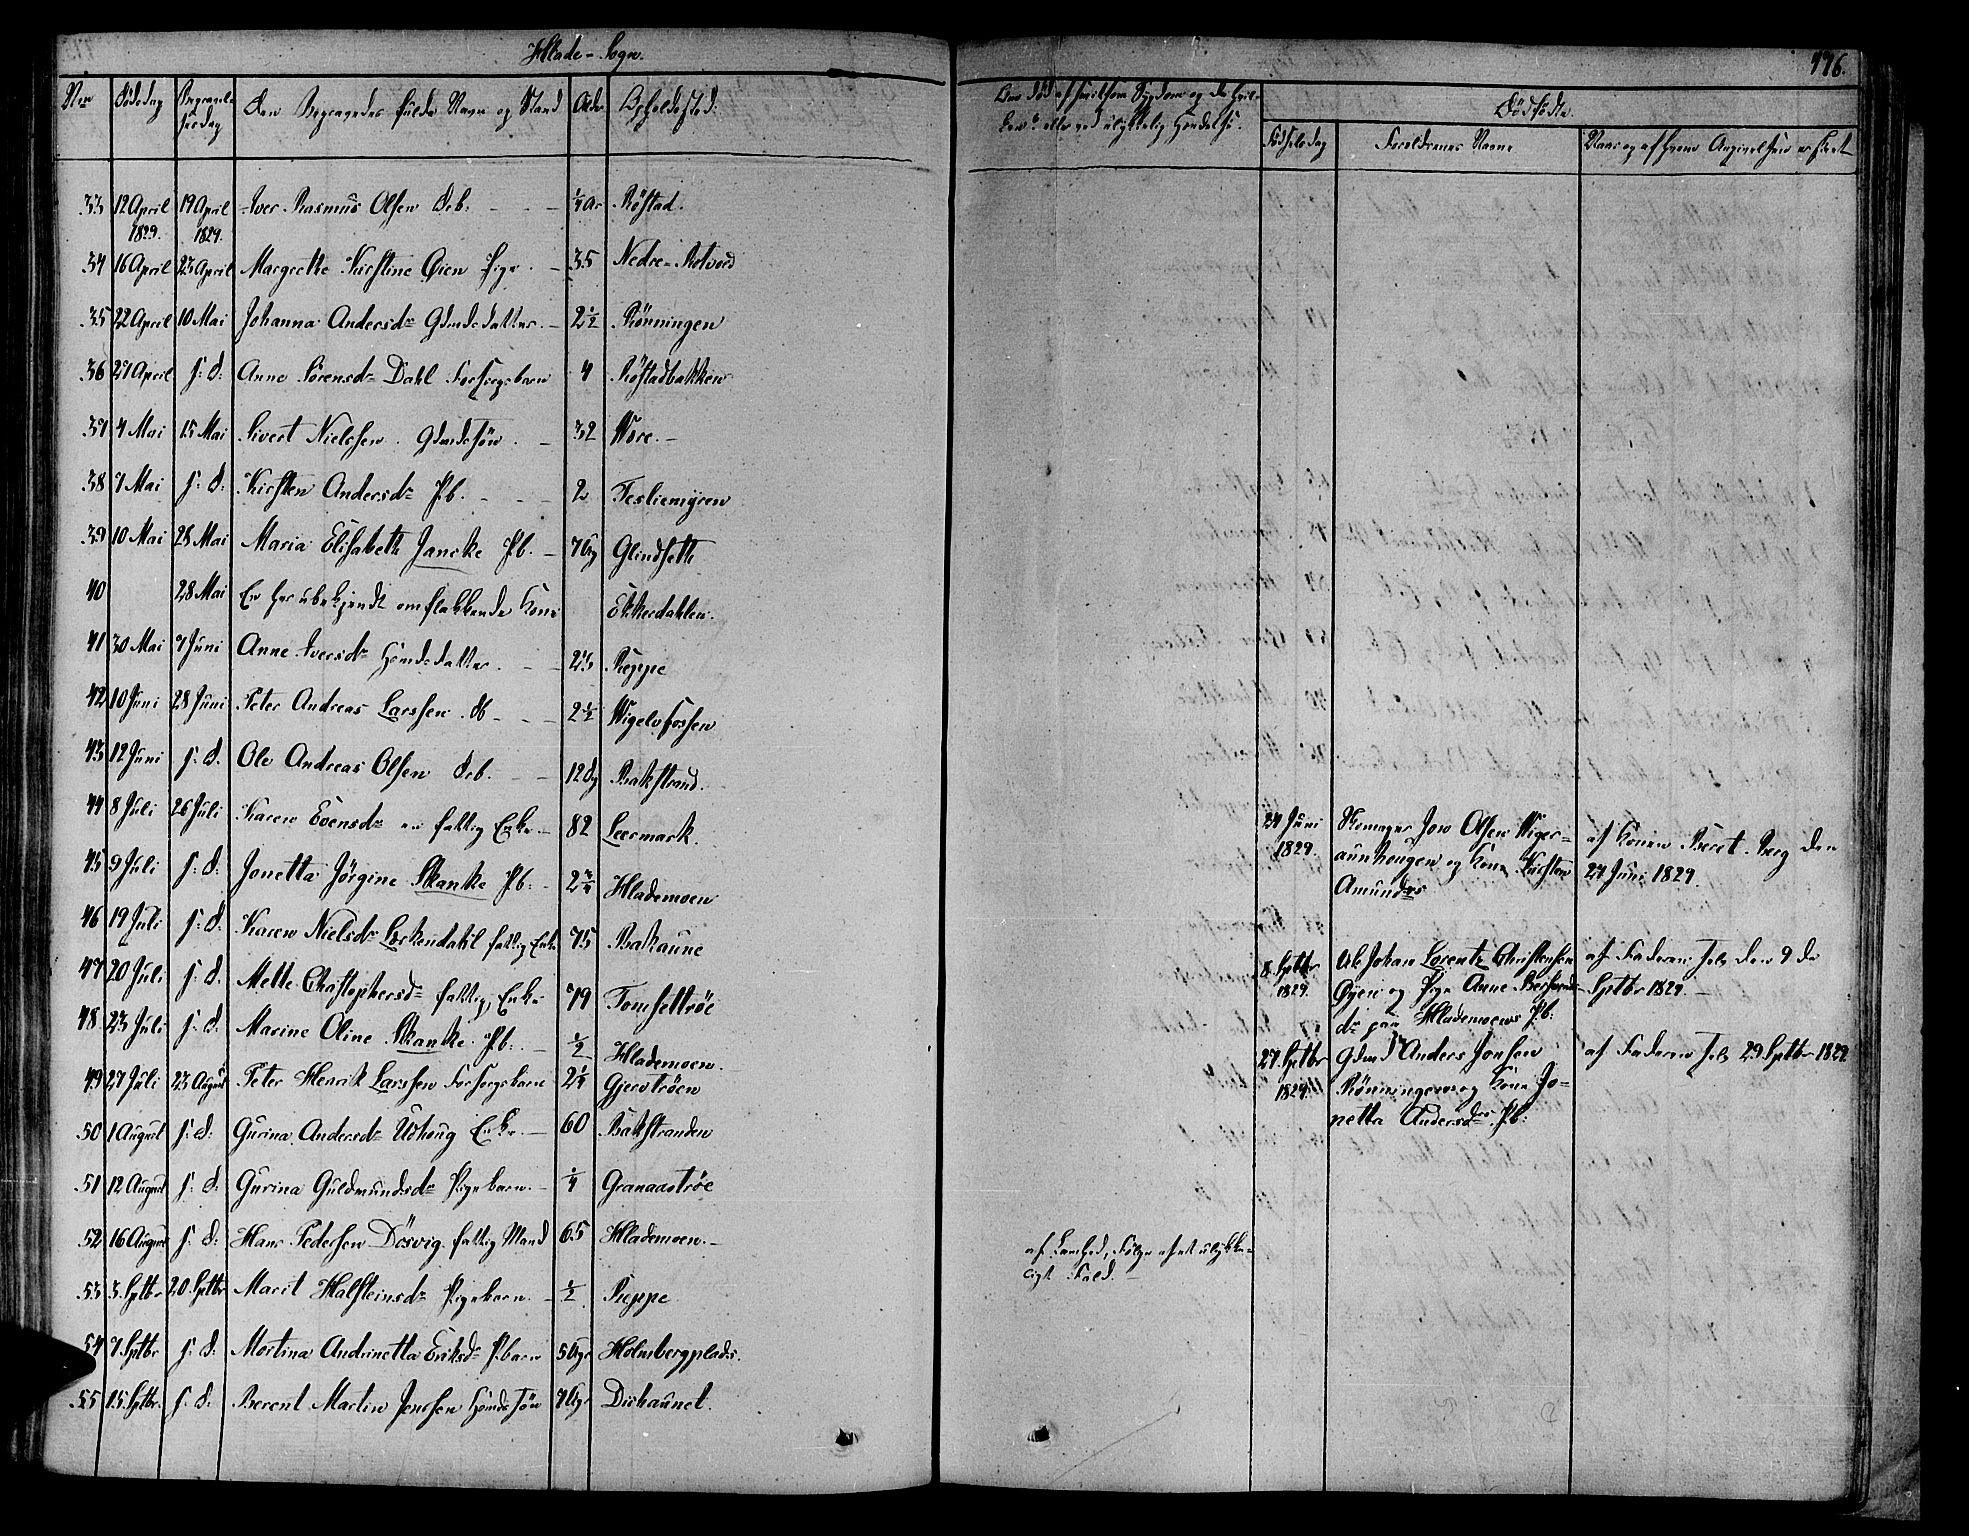 Hlade-Sogn.
176.
Nro Dødsdag Begravelsesdag Den Begravedes fulde Navn og Stand Alder Opholdssted:
33 12 April 1829. 19 April 1829. Iver Rasmus Olsen Drb. - - - ¼ Ar Røstad.
34 16 April 23 April Margrethe Kirstine Øien Pige - 35 Nedre-Rotvold
35 22 April 10 Mai Johanna Andersdr Gdmdsdatter. - 2½ Rønningen
36 27 April s: d: Anne Sørensdr Dahl Forsorgsbarn 4 Røstadbakken
37 4 Mai 15 Mai Sivert Nielssen. Gdmdssøn. - 32 Wore. -
38 7 Mai s: d: Kirsten Andersdr Pb. - - - 2 Tesliemyren
39 10 Mai 28 Mai Maria Elisabeth Jancke Pb. - 7 Ug Glindseth
40 28 Mai En her ubekjendt omflakkende Kone Ekkerdahlen.
41 30 Mai 7 Juni Anne Iversdr Hsmdsdatter. - - Reppe
42 10 Juni 28 Juni Peter Andreas Larssen. Db - - - 2½ Wigelvfossen
43 12 Juni s: d: Ole Andreas Olsen Drb. - - 12 Dg Bakstrand.
44 8 Juli 26 Juli Karen Evensdr en fattig Enke - 82 Leermark.
45 9 Juli s: d: Jonetta Jørgine Skanke Pb: - 2¾ Hlademoen
46 19 Juli s: d: Karen Nielsdr Lerkendahl fattig Enke 75 Bakaune
47 20 Juli s: d: Mette Chrstophersdr fattig Enke 79 Tomsettrøe
48. 23 Juli s: d: Marine Oline Skanke. Pb: - ½ Hlademoen.
49 27 Juli 23 August Peter Henrik Larssen Forsorgsbarn 2¼ Gjervtrøen
50 1 August s: d: Gurina. Andersdr Udhoug Enke - 60 Bakstranden
51 12 August s: d: Gurina Guldmundsdr Pigebarn. - ¼ Granaastrøe
52 16 August s: d: Hans Pedersen Døsvig. fattig Mand 65 Hlademoen. -
53 3. Sptbr 20. Sptbr Marit Halsteinsdr Pigebarn. - ½ Reppe
54 7. Sptbr s: d: Martina Andrinetta Eriksdr Pbarn 5 Ugr Holmbergplads.
55 15. Sptbr. s: d: Berent Martin Jenssen Hsmds Søn 7 Ugr Dirhaunet.
Om død af smitsom Sygdom og da hvil-
ken? eller ved ulykkelig Hændelse.
Dødfødte.
Fødselsdag Forældrenes Navne Naar og af hvem Angivelsen er skeet
24 Juni 1829. Jon Olsen Wiger-
aunhougen og Kone Kirsten
Amundsdr
af Konen Beret Berg den
27 Juni 1829.
8. Sptbr 1829. Johan Lorentz Christensen
Øyen og Pige Anne
dr paa Hlademoens Pb:
af Faderen selv den 9de
Sptbr 1829. -
27. Sptbr 1829. Gdmd Anders Jonsen
Rønningen og Kone Jo-
netta Andersdr Pb:
af Faderen selv 29 Sptbr 1829
af Følge af et ulykke-
ligt Fald. -